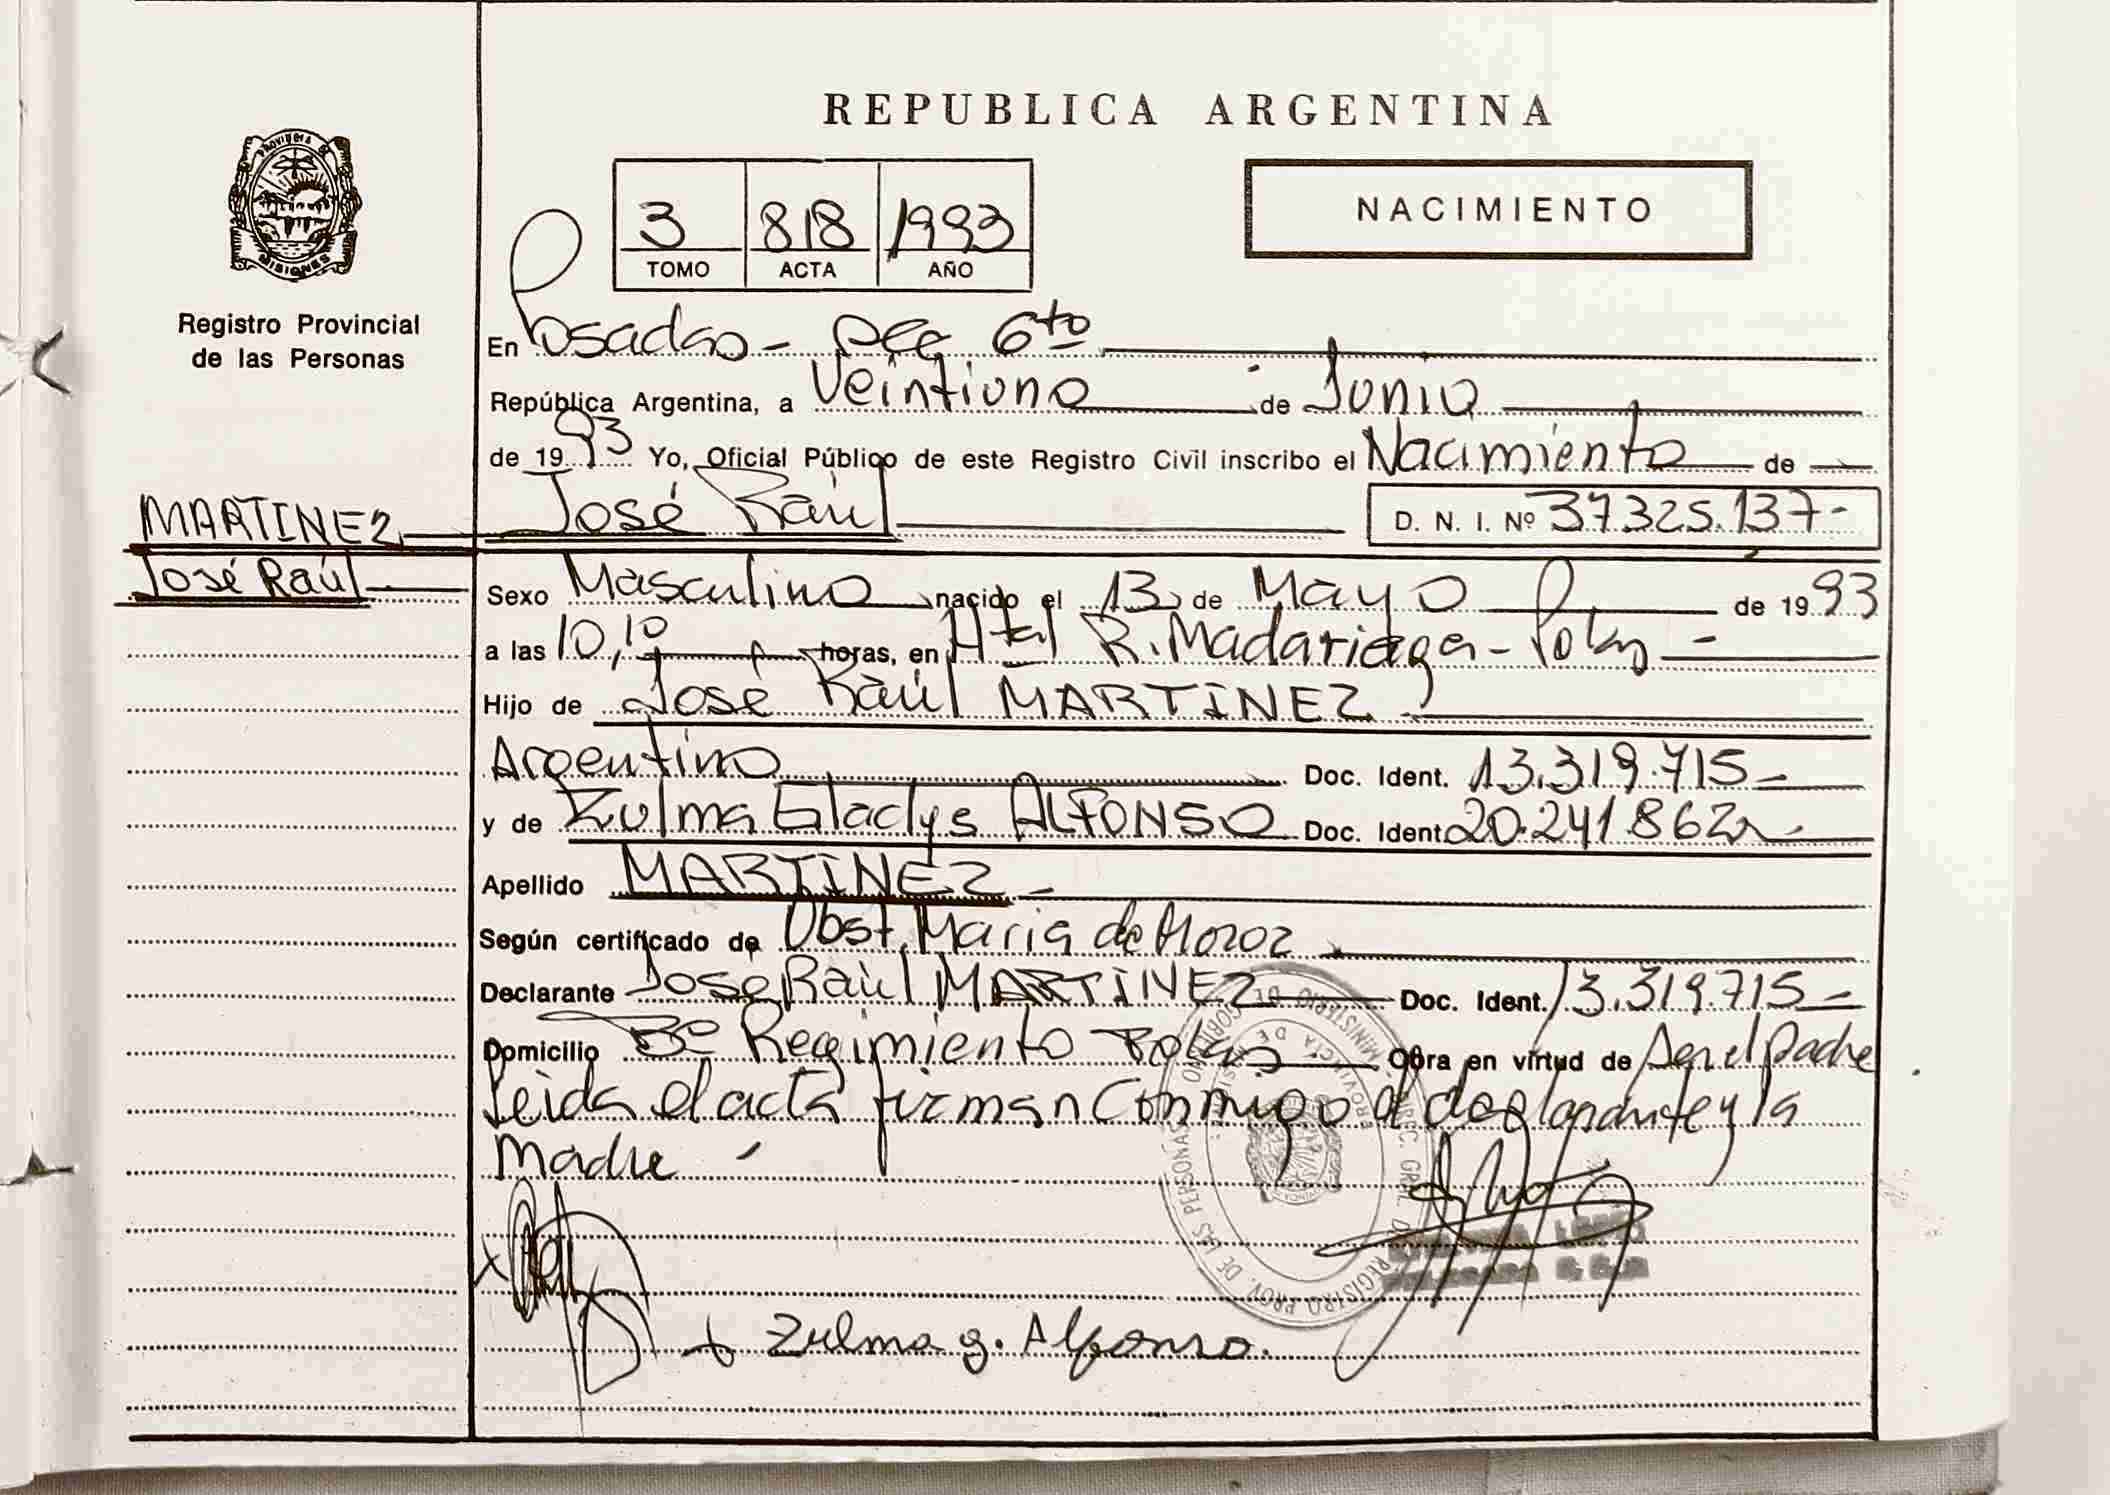 REPUBLICA ARGENTINA
NACIMIENTO
3 818 1993
TOMO ACTA AÑO
PROVINCIA DE
MISIONES
Registro Provincial
de las Personas
MARTINEZ
José Raúl
En Posadas - 6to
República Argentina, a Veintiuno de Junio
de 1993 Yo, Oficial Público de este Registro Civil inscribo el Nacimiento de
José Raúl D. N. I. Nº 37325.137-
Sexo Masculino nacido el 13 de Mayo de 1993
a las 10,10 horas, en Htal R. Madariaga -
Hijo de José Raúl MARTINEZ
Argentino Doc. Ident. 13.319.715-
y de Zulma Gladys ALFONSO Doc. Ident. 20.241.862
Apellido MARTINEZ-
Según certificado de Obst. Maria de Moroz
Declarante José Raúl MARTINEZ Doc. Ident. 13.319.715-
Domicilio Bº Regimiento Obra en virtud de Ser el padre
Leida el acta firman Conmigo el declarante y la
Madre -
x
+ Zulma g. Alfonso.
MINISTERIO DE GOBIERNO
PROVINCIA DE
REGISTRO PROV. DE LAS PERSONAS